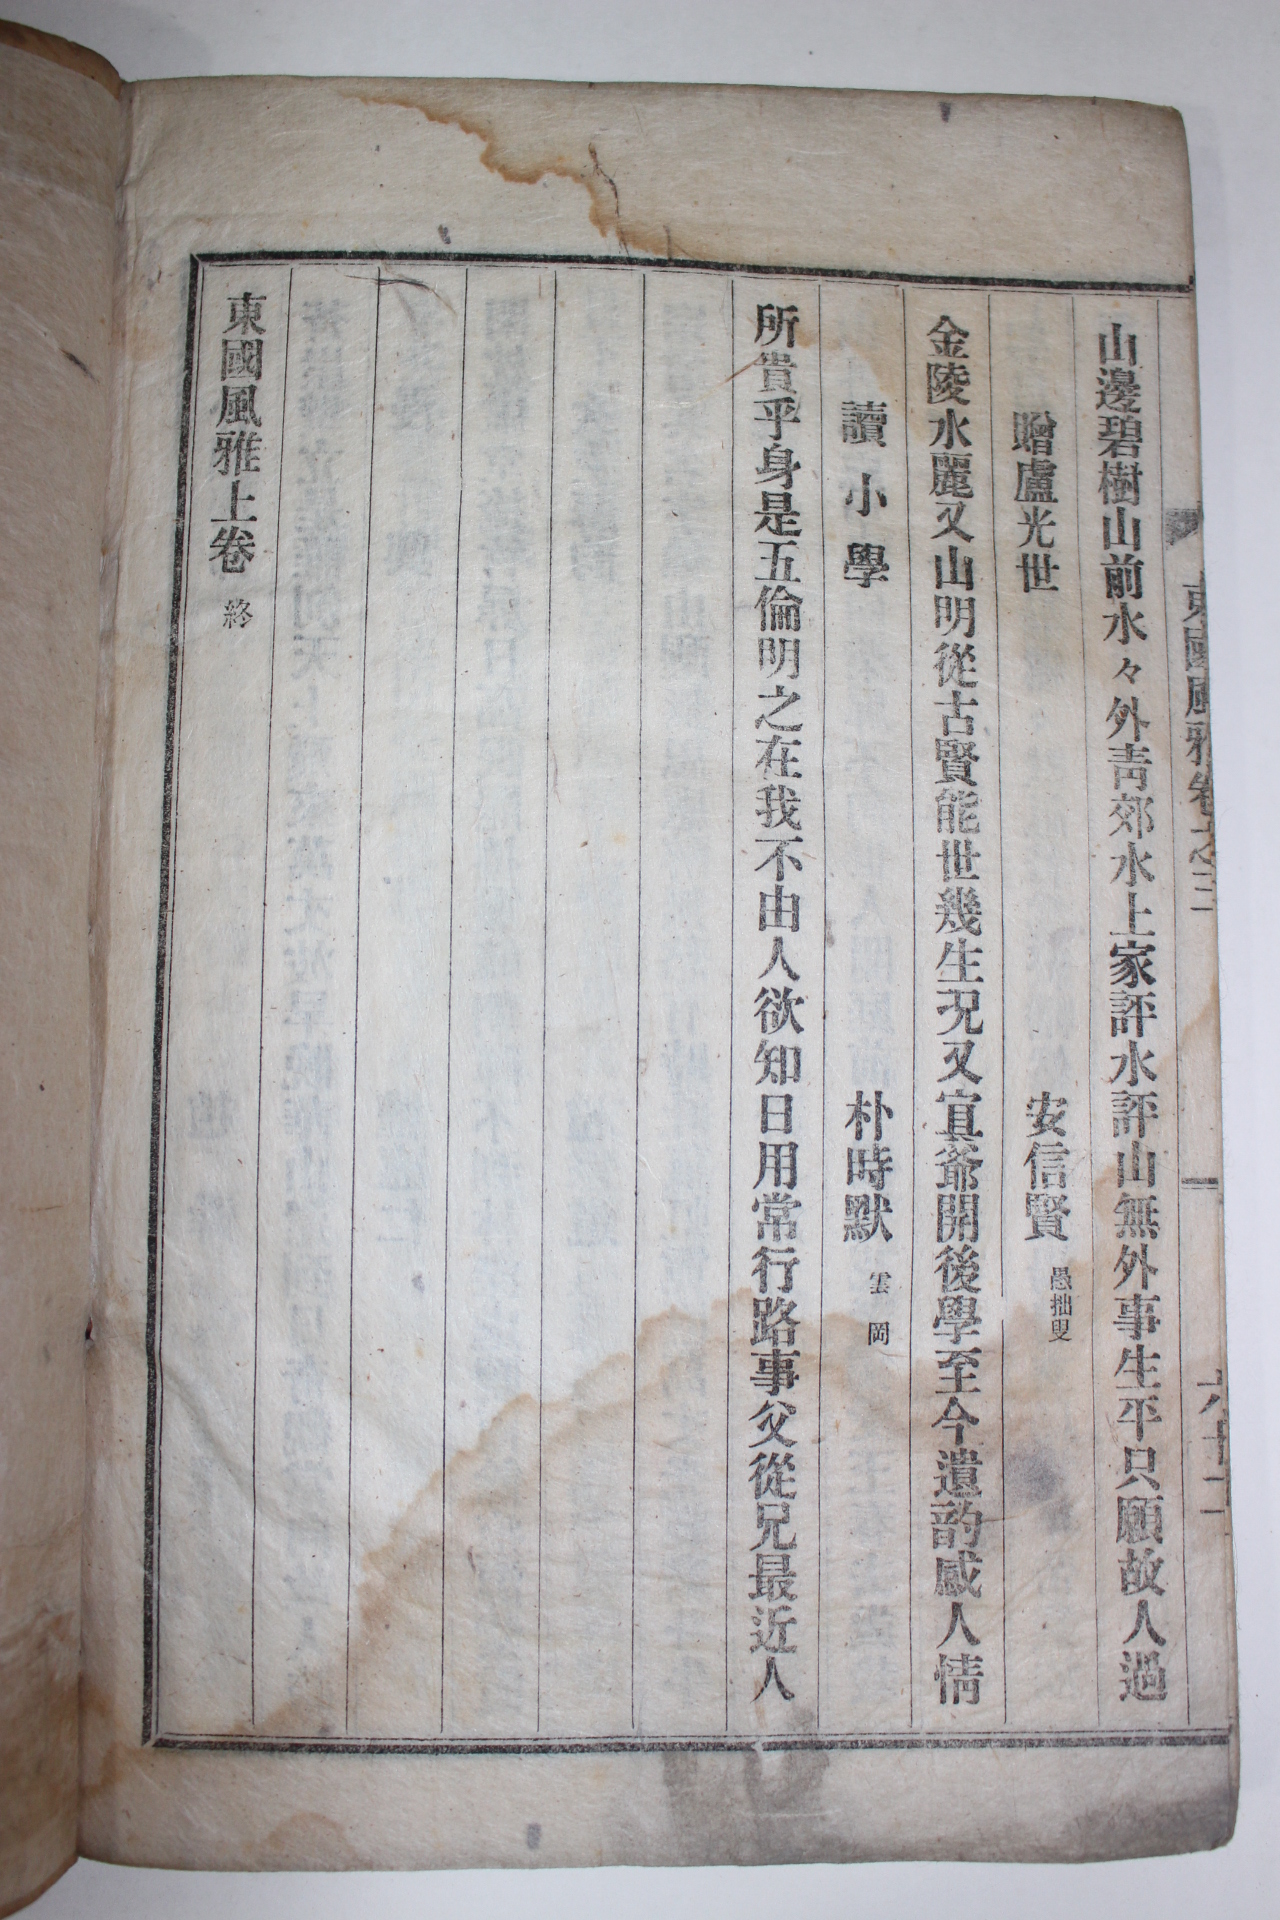 東國風雅卷之三
六十二
山邊碧樹山前水々外靑郊水上家評水評山無外事生平只願故人過
贈盧光世 安信賢 愚拙叟
金陵水麗又山明從古賢能世幾生況又寘爺開後學至今遺韵感人情
讀小學 朴時默 雲岡
所貴乎身是五倫明之在我不由人欲知日用常行路事父從兄最近人
東國風雅上卷 終